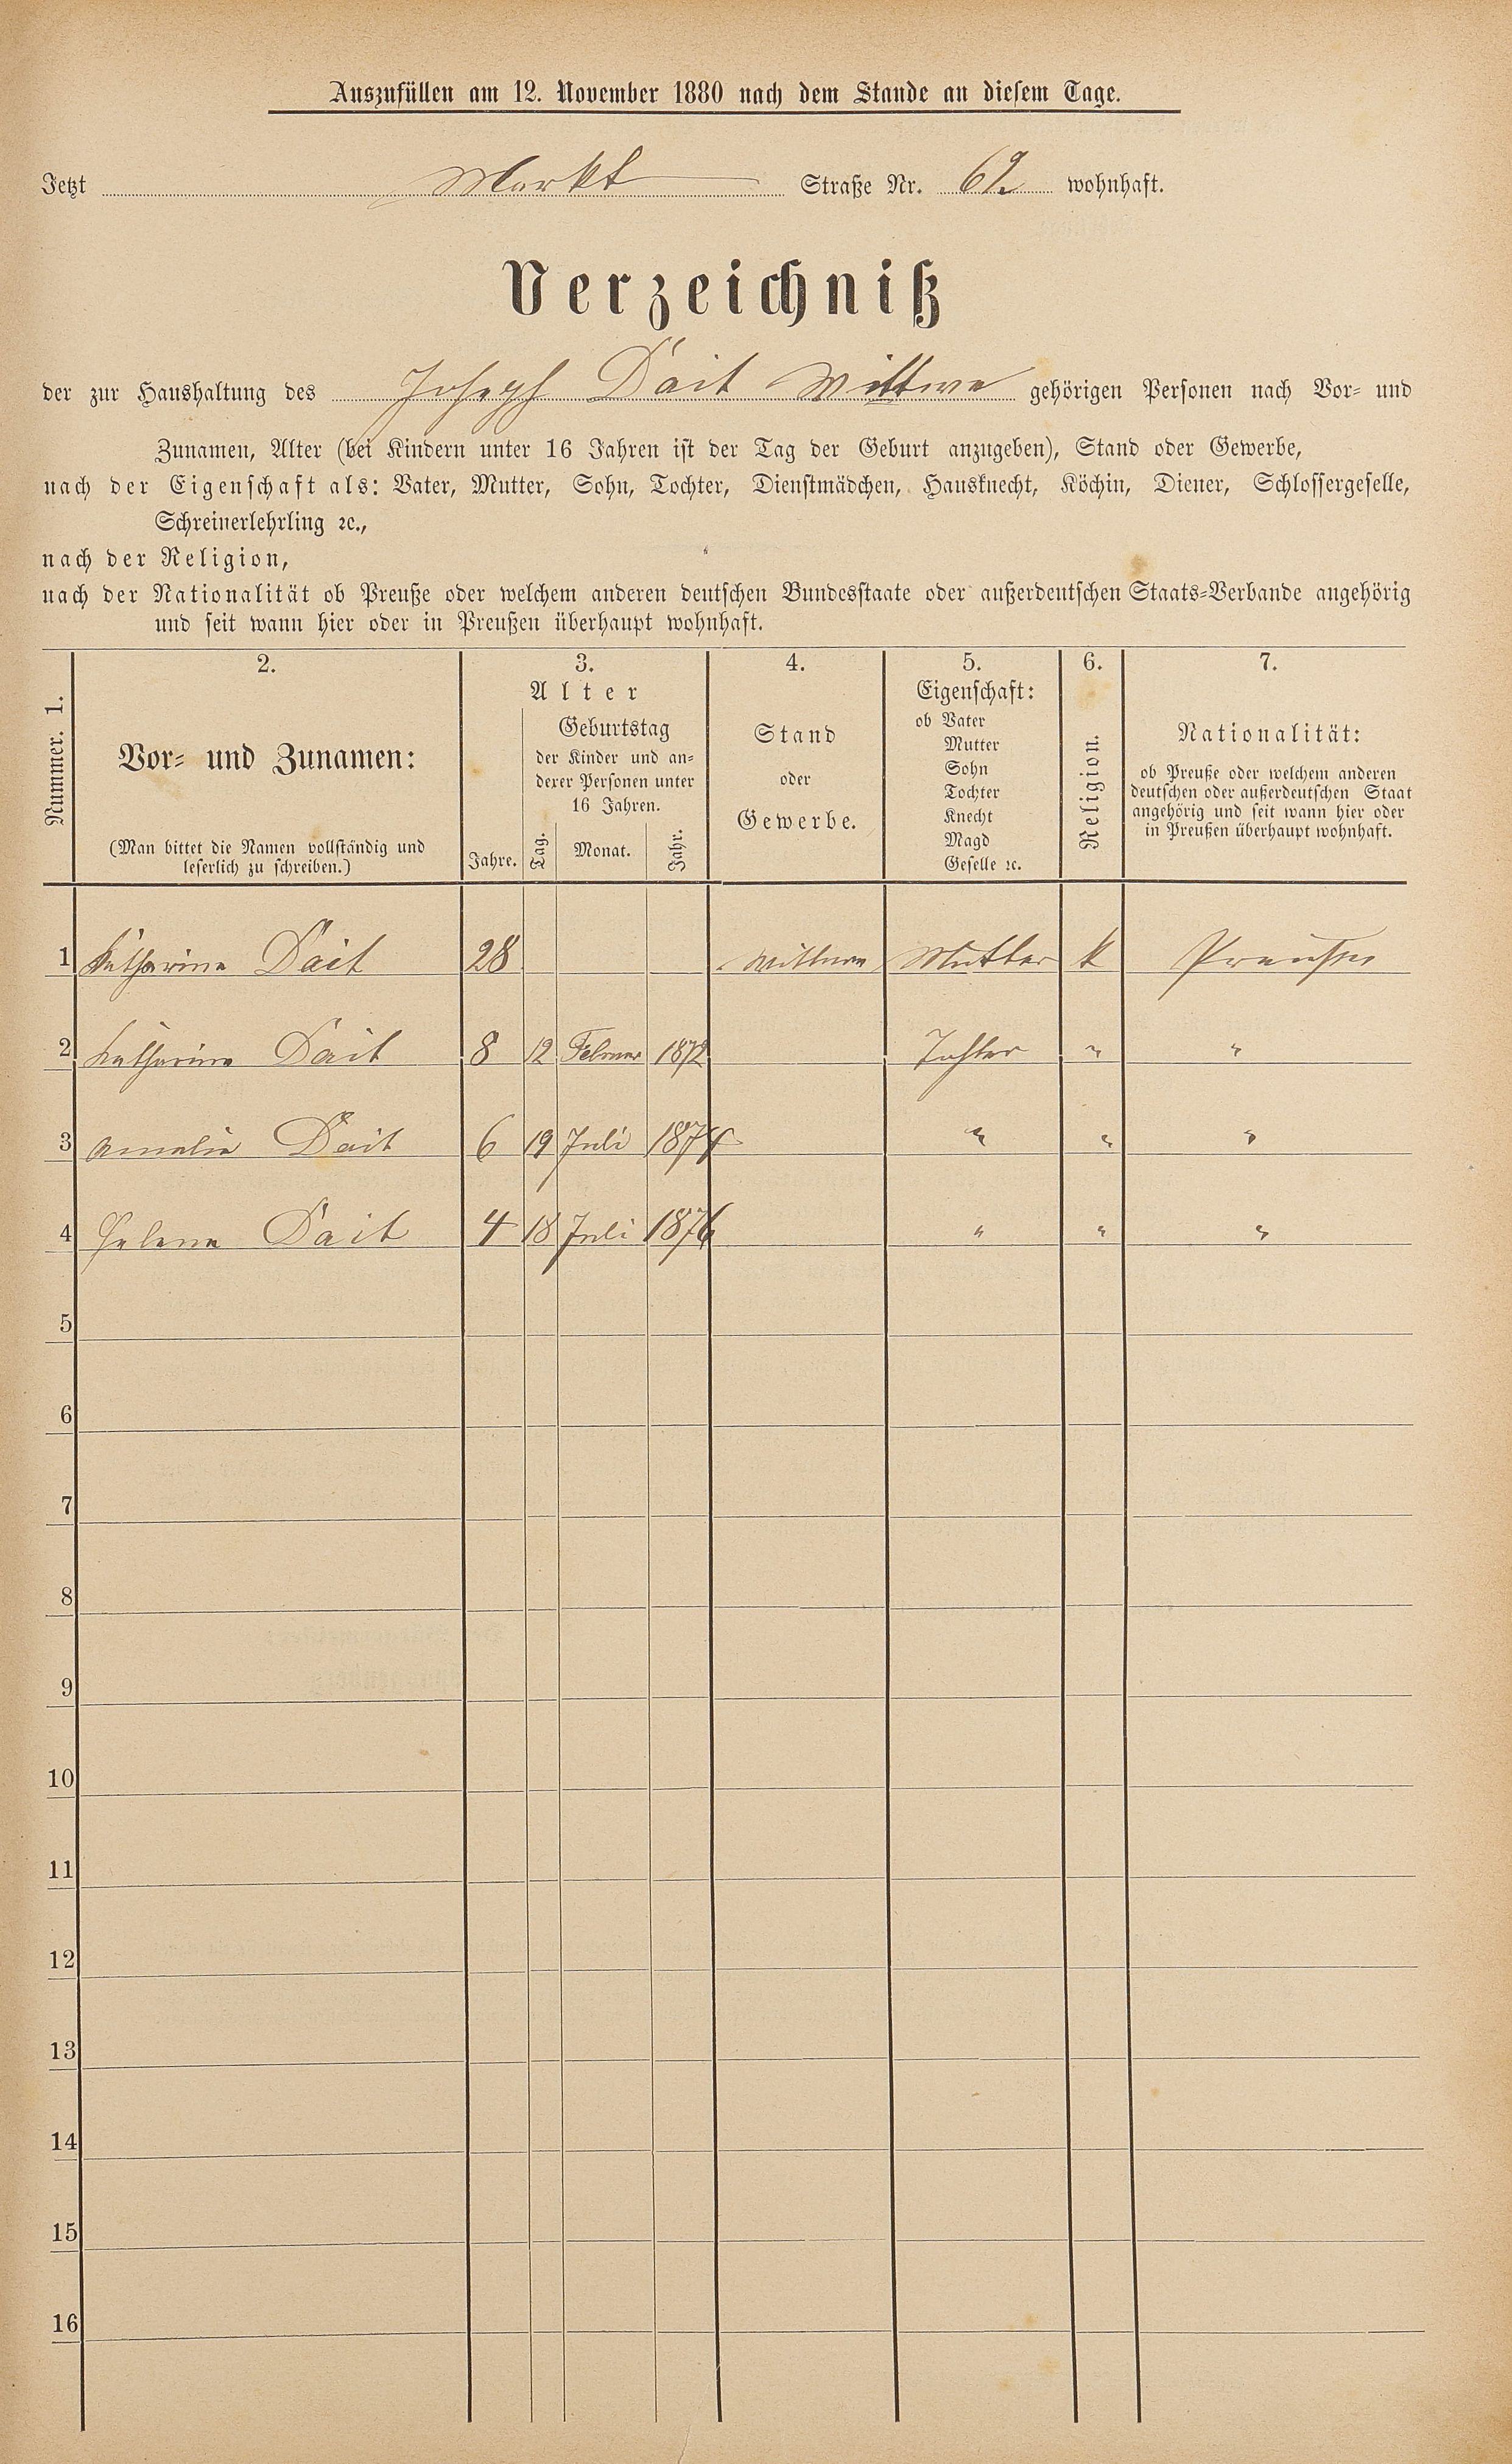 Auszufüllen am 12. November 1880 nach dem Stande an diesem Tage.
Jetzt Markt Straße Nr. 62 wohnhaft.
Verzeichniß
der zur Haushaltung des Joseph Dait Wittwe gehörigen Personen nach Vor- und
Zunamen, Alter (bei Kindern unter 16 Jahren ist der Tag der Geburt anzugeben), Stand oder Gewerbe,
nach der Eigenschaft als: Vater, Mutter, Sohn, Tochter, Dienstmädchen, Hausknecht, Köchin, Diener, Schlossergeselle,
Schreinerlehrling ꝛc.,
nach der Religion,
nach der Nationalität ob Preuße oder welchem anderen deutschen Bundesstaate oder außerdeutschen Staats-Verbande angehörig
und seit wann hier oder in Preußen überhaupt wohnhaft.
Nummer. 1.
2.
Vor- und Zunamen:
(Man bittet die Namen vollständig und
leserlich zu schreiben.)
3.
Alter
Jahre.
Geburtstag
der Kinder und an-
derer Personen unter
16 Jahren.
Tag. Monat. Jahr.
4.
Stand
oder
Gewerbe.
5.
Eigenschaft:
ob Vater
Mutter
Sohn
Tochter
Knecht
Magd
Geselle ꝛc.
6.
Religion.
7.
Nationalität:
ob Preuße oder welchem anderen
deutschen oder außerdeutschen Staat
angehörig und seit wann hier oder
in Preußen überhaupt wohnhaft.
1 Katharina Dait 28 Wittwe Mutter k Preußen
2 Katharina Dait 8 12 Februar 1872 Tochter " "
3 Amalia Dait 6 19 Juli 1874 " " "
4 Helena Dait 4 18 Juli 1876 " " "
5
6
7
8
9
10
11
12
13
14
15
16